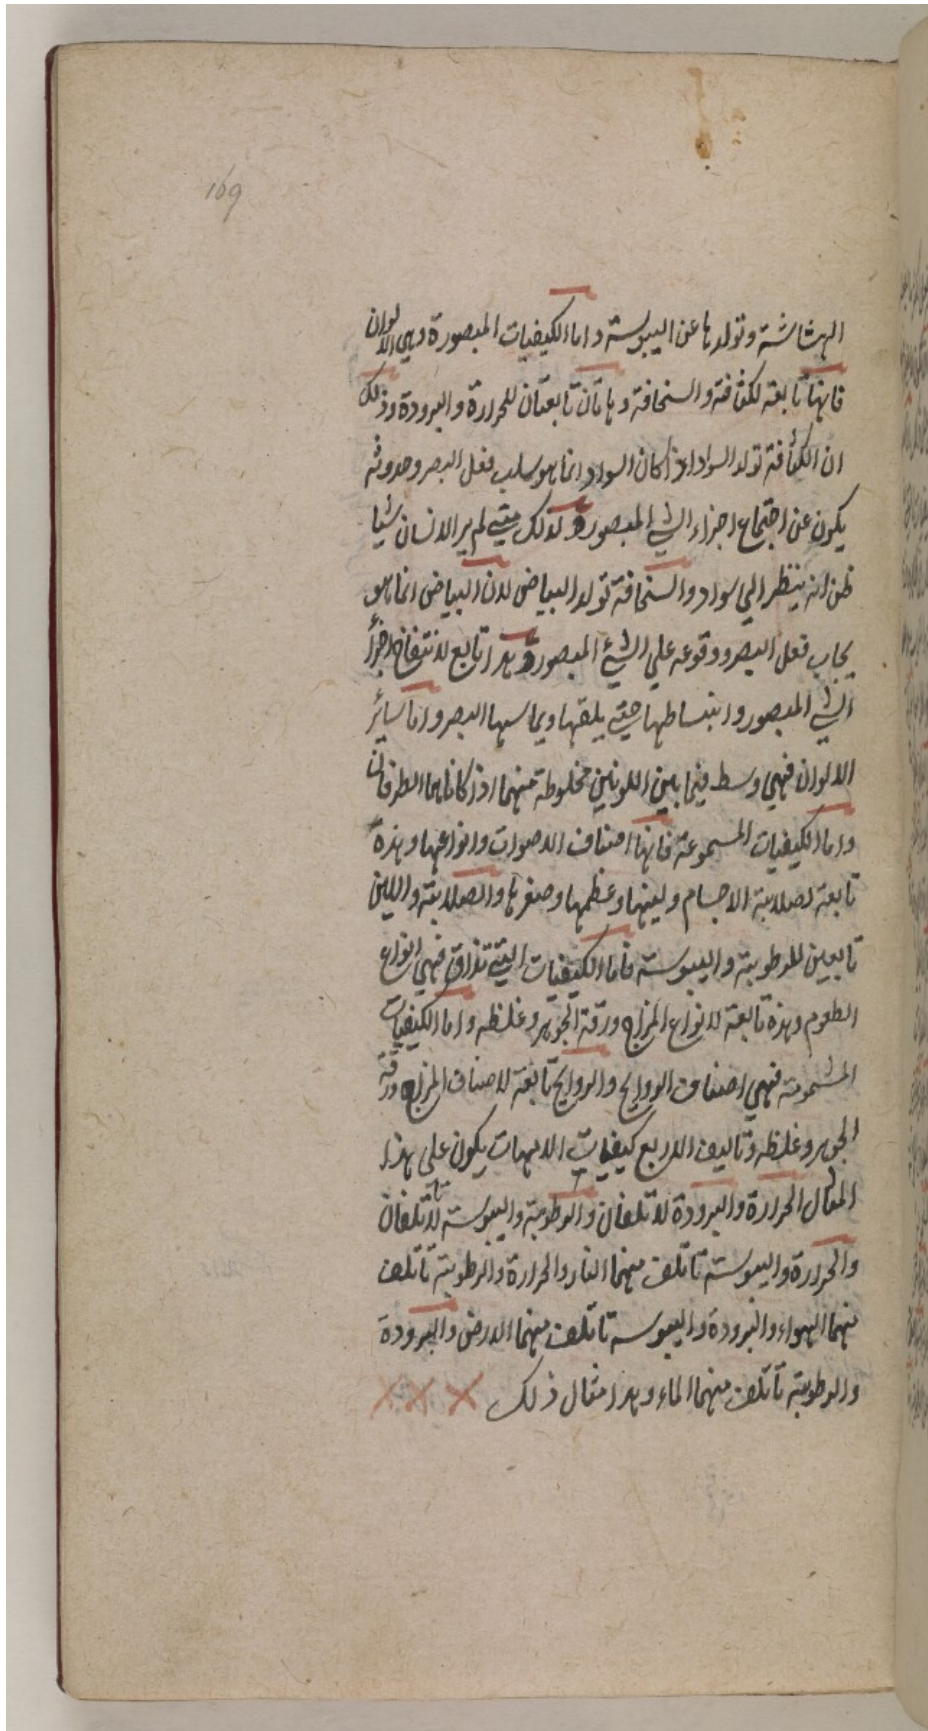 169
الهشاشة وتولدها عن اليبوسة واما الكيفيات المبصورة وهي الالوان
فانها تابعة لكثافة والسخافة وهاتان تابعتان للحرارة والبرودة وذلك
ان الكثافة تولد السواد اذ كان السواد انما هو سلب فعل البصر وحدوثه
يكون عن اجتماع اجزاء الشي المبصور ولذلك متي لم ير الانسان شيا
ظن انه ينظر الي سواد والسخافة تولد البياض لان البياض انما هو
يجاب فعل البصر ووقوعه علي الشيء المبصور وهذا تابع لانتفاخ اجزا
الشي المبصور وانبساطها حتي يلقها ويماسها البصر واما سائر
الالوان فهي وسط فيما بين اللونين مخلوطة منهما اذ كانا هما الطرفان
واما الكيفيات المسموعة فانها اصناف الاصوات وانواعها وهذه
تابعة لصلابة الاجسام ولينها وعظمها وصغرها والصلابة واللين
تابعين للرطوبة واليبوسة فاما الكيفيات التي تذاق فهي انواع
الطعوم وهذة تابعة لانواع المزاج ورقة الجوهر وغلظه واما الكيفيات
المشمومة فهي اصناف الروايح والروايح تابعة لاصناف المزاج ورقة
الجوهر وغلظه وتاليف الاربع كيفيات الامهات يكون علي هذا
المثال الحرارة والبرودة لا تاتلفان والرطوبة واليبوسة لا تاتلفان
والحرارة واليبوسة تاتلف منهما النار والحرارة والرطوبة تاتلف
منهما الهواء والبرودة واليبوسه تاتلف منهما الارض والبرودة
والرطوبة تاتلف منهما الماء وهذا مثال ذلك